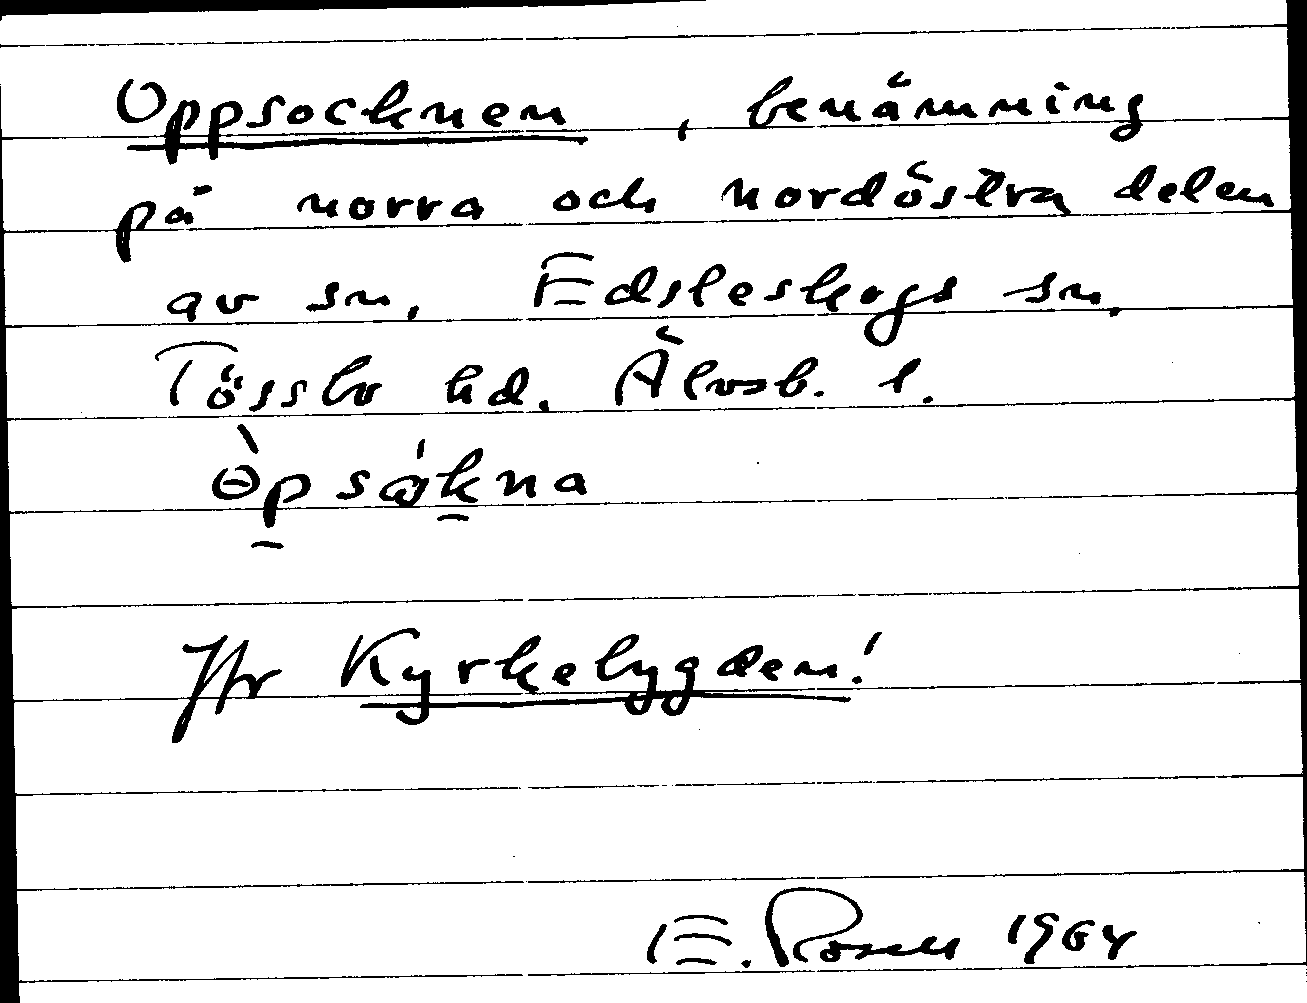 Oppsocknen, benämning
på norra och nordöstra delen
av sn, Edsleskogs sn,
Tössbo hd. Älvsb. l.
Jfr Kyrkebygden!
E. Rosell 1964